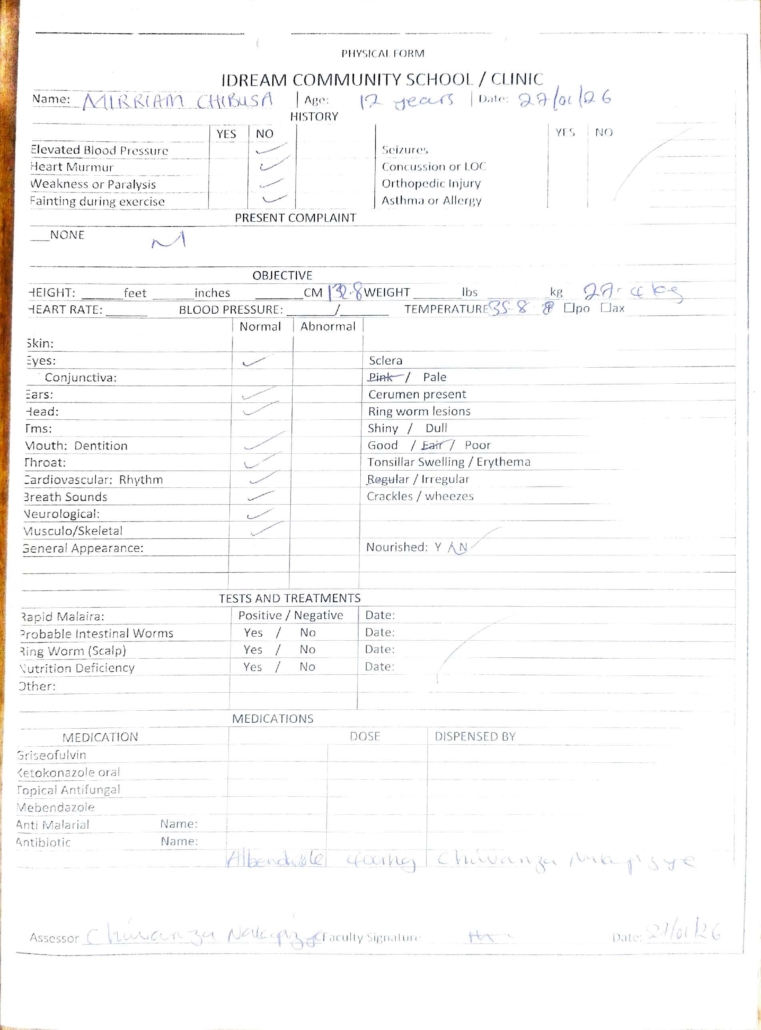 PHYSICAL FORM
IDREAM COMMUNITY SCHOOL / CLINIC
Name: MIRRIAM CHIBUSA Age: 12 years Date: 27/01/26
HISTORY
YES NO YES NO
Elevated Blood Pressure ✓ Seizures
Heart Murmur ✓ Concussion or LOC
Weakness or Paralysis ✓ Orthopedic Injury
Fainting during exercise ✓ Asthma or Allergy
PRESENT COMPLAINT
__NONE
OBJECTIVE
HEIGHT: ______ feet ______ inches ______ CM 132.8 WEIGHT ______ lbs ______ kg 27.4 kg
HEART RATE: ______ BLOOD PRESSURE: ______/______ TEMPERATURE 35.8 ☐po ☐ax
Normal Abnormal
Skin:
Eyes: ✓ Sclera
Conjunctiva: Pink / Pale
Ears: ✓ Cerumen present
Head: ✓ Ring worm lesions
Tms: Shiny / Dull
Mouth: Dentition ✓ Good / Fair / Poor
Throat: ✓ Tonsillar Swelling / Erythema
Cardiovascular: Rhythm ✓ Regular / Irregular
Breath Sounds ✓ Crackles / wheezes
Neurological: ✓
Musculo/Skeletal ✓
General Appearance: Nourished: Y / N
TESTS AND TREATMENTS
Rapid Malaira: Positive / Negative Date:
Probable Intestinal Worms Yes / No Date:
Ring Worm (Scalp) Yes / No Date:
Nutrition Deficiency Yes / No Date:
Other:
MEDICATIONS
MEDICATION DOSE DISPENSED BY
Griseofulvin
Ketokonazole oral
Topical Antifungal
Mebendazole
Anti Malarial Name:
Antibiotic Name:
400mg Chiwanza
Assessor Chiwanza Faculty Signature Date: 27/01/26